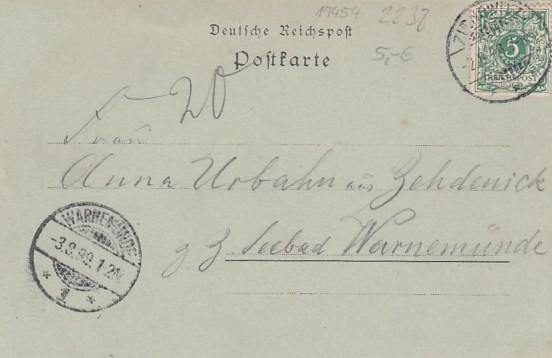 17454 2237
Deutsche Reichspost
5,-€
Postkarte
5
REICHSPOST
20
Frau
Anna Urbahn aus Zehdenick
z Z Seebad Warnemünde
WARNEMÜNDE
-3.8.99.1-2N.
* 1 *